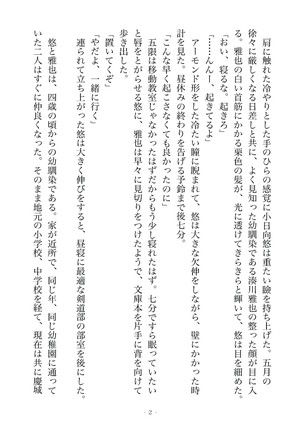 肩に触れた冷たい手のひらの感覚に小日向悠は重たい瞼を持ち上げた。五月の
徐々に厳しくなる日差しと共に、よく見知った幼馴染である湊川雅也の整った顔が目に入
る。雅也の白い首筋にかかる栗色の髪が、光に透けてきらきらと輝いて、悠は目を細めた。
「おい、寝るな。起きろ」
「……んんー、起きてるよ」
アーモンド形をした冷たい瞳に睨まれて、悠は大きな欠伸をしながら、壁にかかった時
計を見た。昼休みの終わりを告げる予鈴まで後七分。
「こんな早く起こさなくても良かったのに」
五限は移動教室じゃなかったはずだからもう少し寝れたはず。七分ですら眠っていたい
と唇をとがらせる悠に、雅也は早々に見切りをつけたようで、文庫本を片手に背を向けて
歩き出した。
「置いてくぞ」
「やだよ、一緒に行く」
連れられて立ち上がった悠は大きく伸びをすると、昼寝に最適な剣道部の部室を後にした。
悠と雅也は、四歳の頃からの幼馴染である。家が近所で、同じ年、同じ幼稚園に通って
いた二人はすぐに仲良くなった。そのまま地元の小学校、中学校を経て、現在は共に慶城
- 2 -